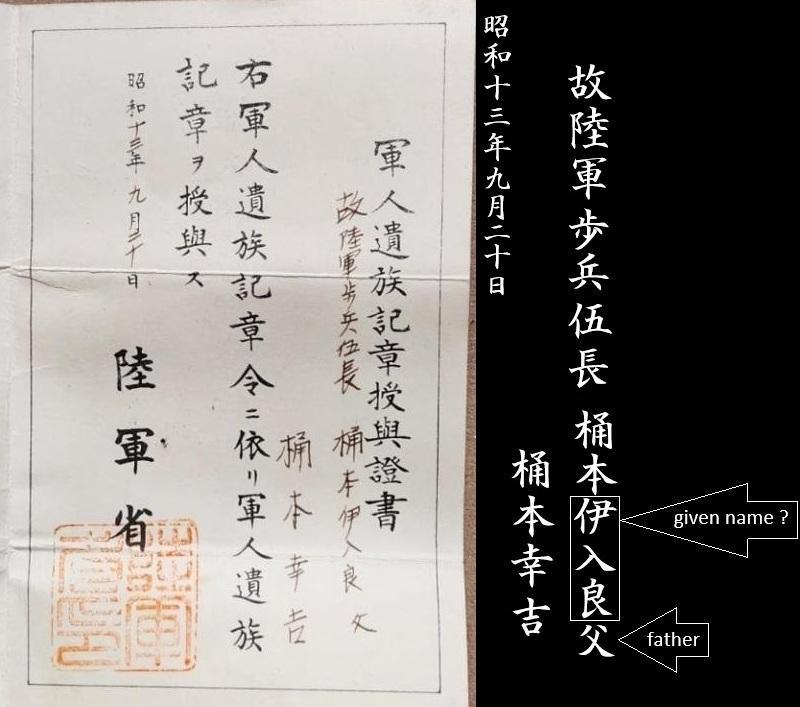 軍人遺族記章授與證書
故陸軍歩兵伍長 桶本伊入良 父
桶本幸吉
右軍人遺族記章令ニ依リ軍人遺族
記章ヲ授與ス
昭和十三年九月二十日
陸軍省
故陸軍歩兵伍長 桶本伊入良父
桶本幸吉
昭和十三年九月二十日
given name ?
father